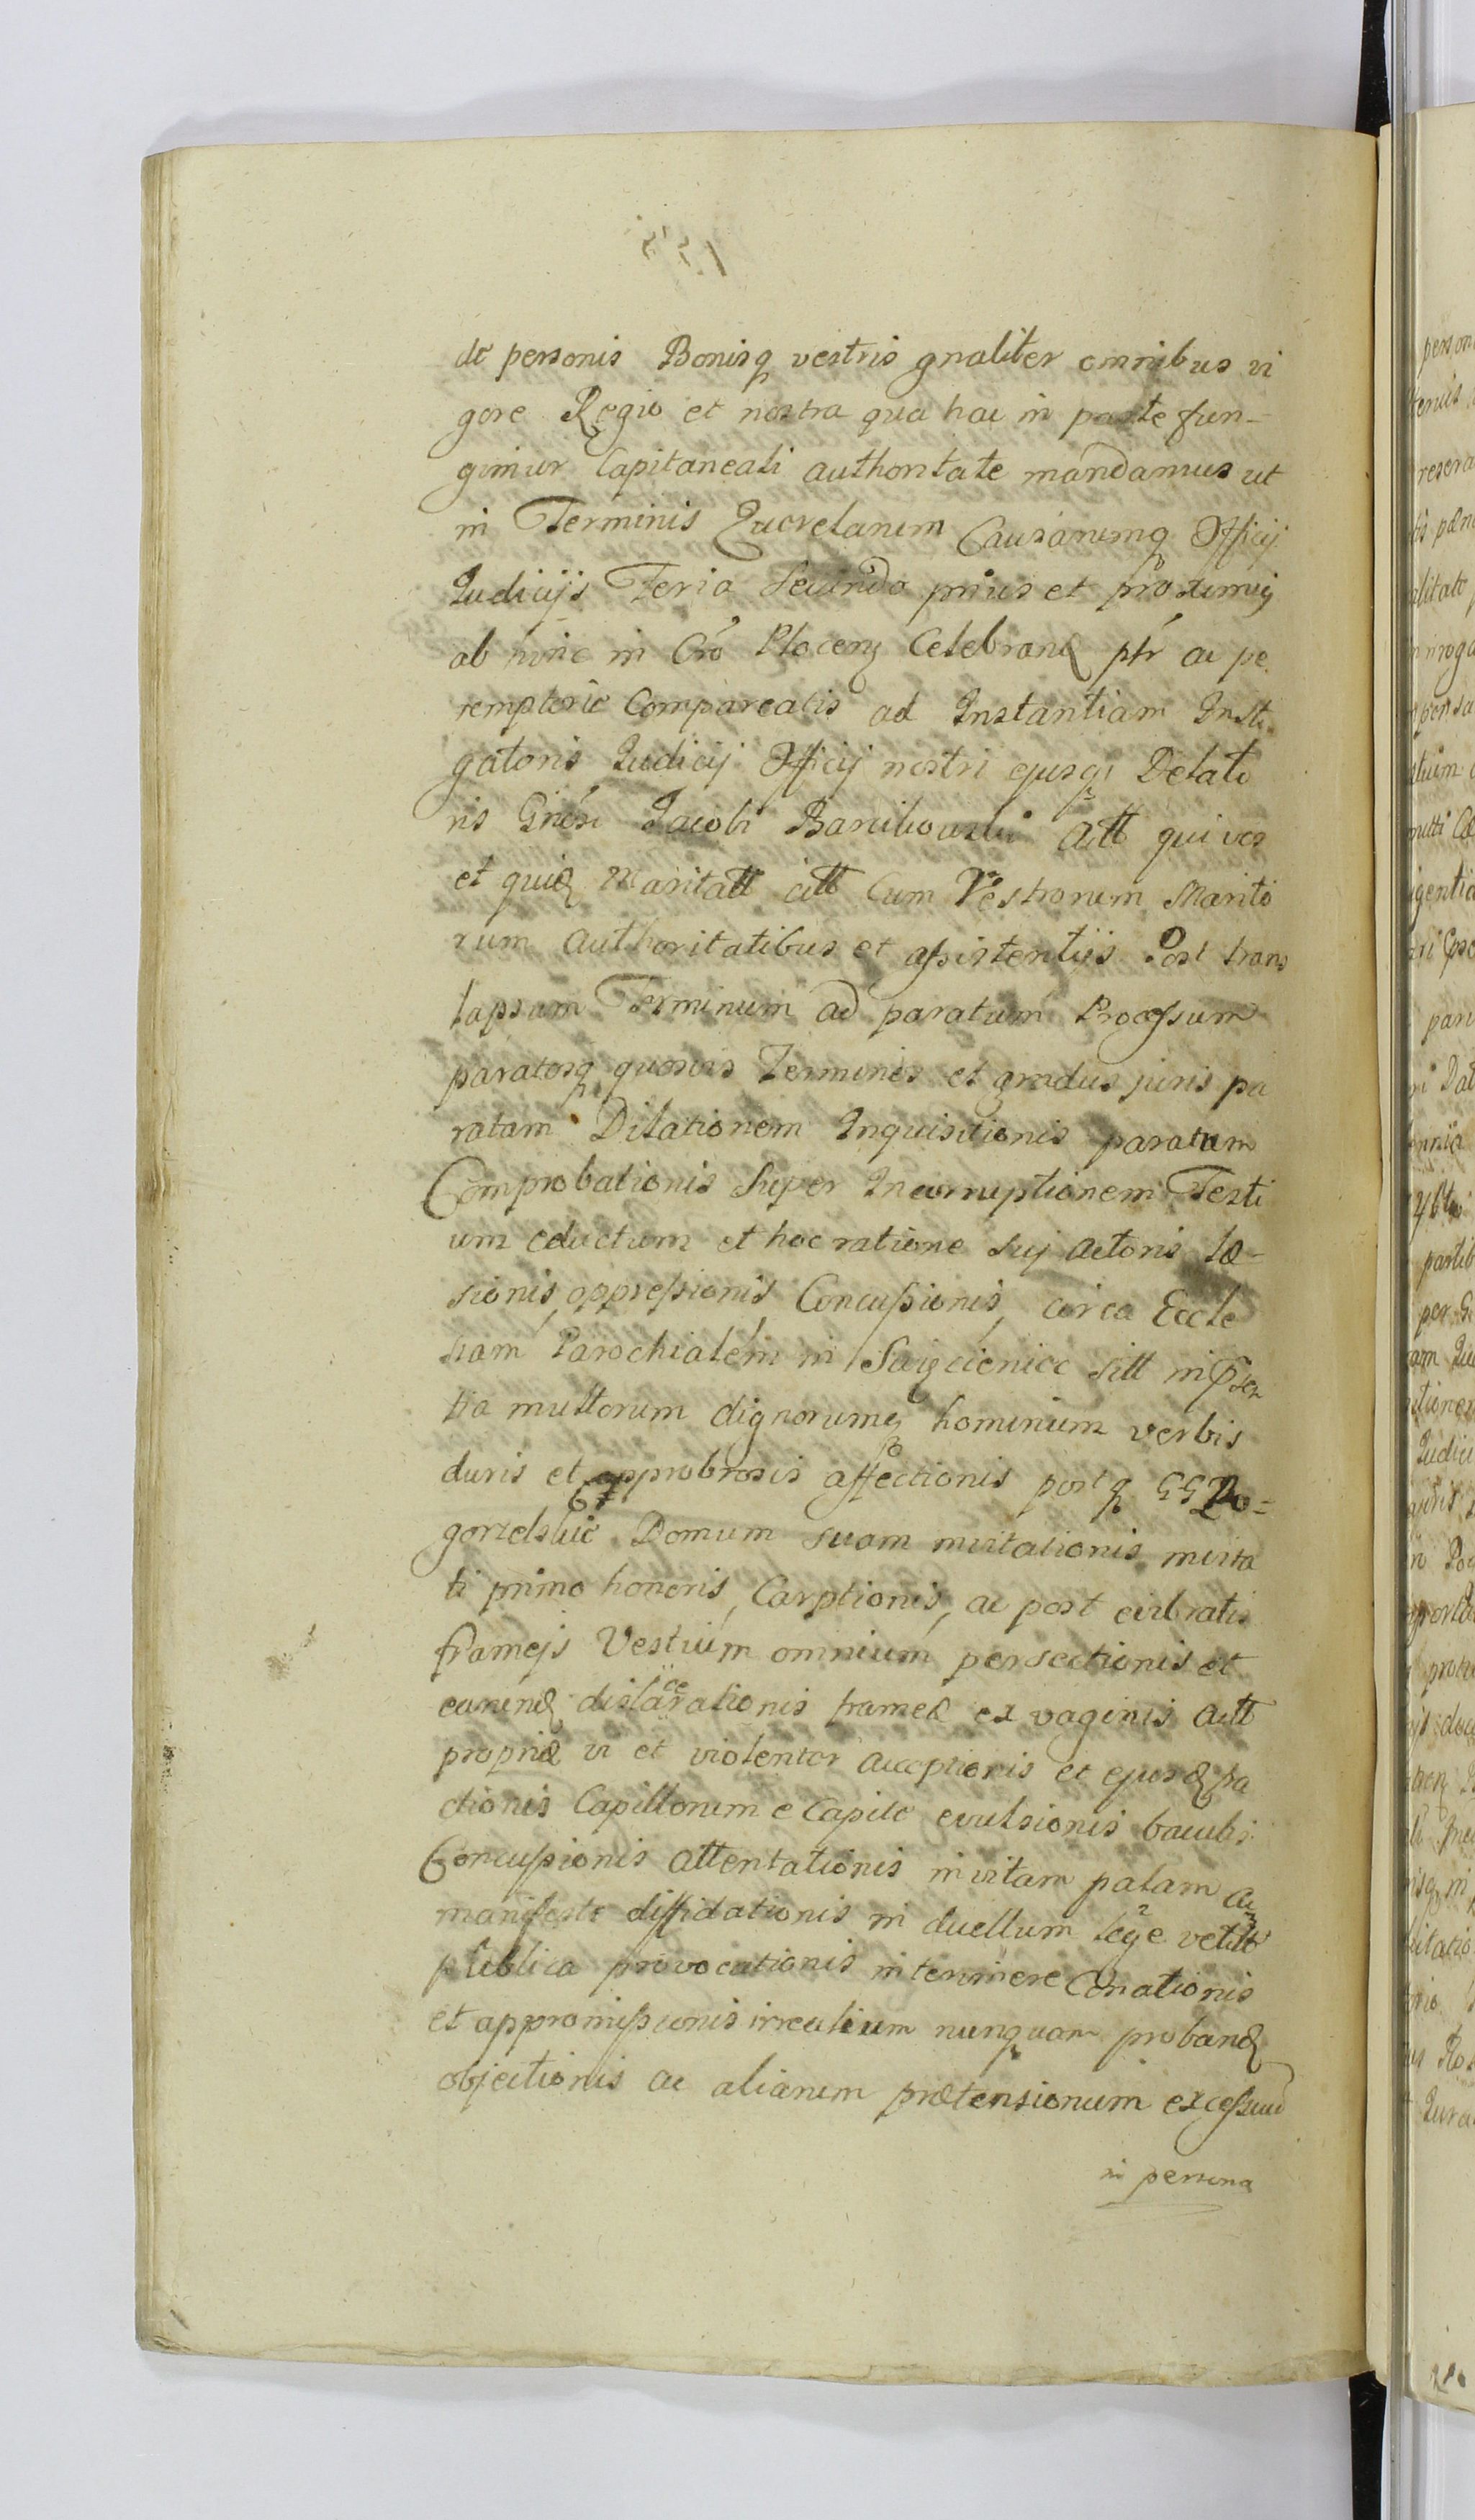 de personis Bonisq vestris gnaliter omnibus vi
gore Regio et nostra qua hac in parte fun-
gimur Capitaneali authoritate mandamus ut
in Terminis Querelarum Causarumq Officij
Judicijs Feria Secunda prius et proximej
ab hinc in Cro Plocens Celebrand ptr ac pe
remptorie Compareatis ad Instantiam Insti
gatoris Judicij Officij nostri ejusq Delato
ris Gnosi Jacobi Act qui vos
et quid Maritatt citt Cum Vestrorum Marito
rum authoritatibus et assistentijs Post trans
lapsum Terminum ad paratum Processum
paratosq quosvis Terminos et gradus juris pa
ratam Dilationem Inquisitionis paratam
Comprobationis Super Incorruptionem Testi
um eductum et hoc ratione suj actoris læ-
sionis, oppressionis Concussionis, circa Eccle
siam Parochialem in sitt in pñsen
tia multorum dignorumq hominum verbis
duris et opprobrosis affectionis postq GG Po=
gorzelskie Domum suam invitationis invita
ti primo honoris, Carptionis, ac post evibratis
frameis Vestium omnium persectionis et
earund dislacerationis frameæ ex vaginis act
propriæ vi et violenter acceptionis et ejusd fra
ctionis Capillorum e Capite evulsionis baculis
Concussionis attentationis in vitam palam ac
manifeste diffidationis in duellum lege vetitt
publica provocationis interimere Conationis
et appromissionis irrealium nunquam proband
objectionis ac aliarum prætensionum excessuu
in persona